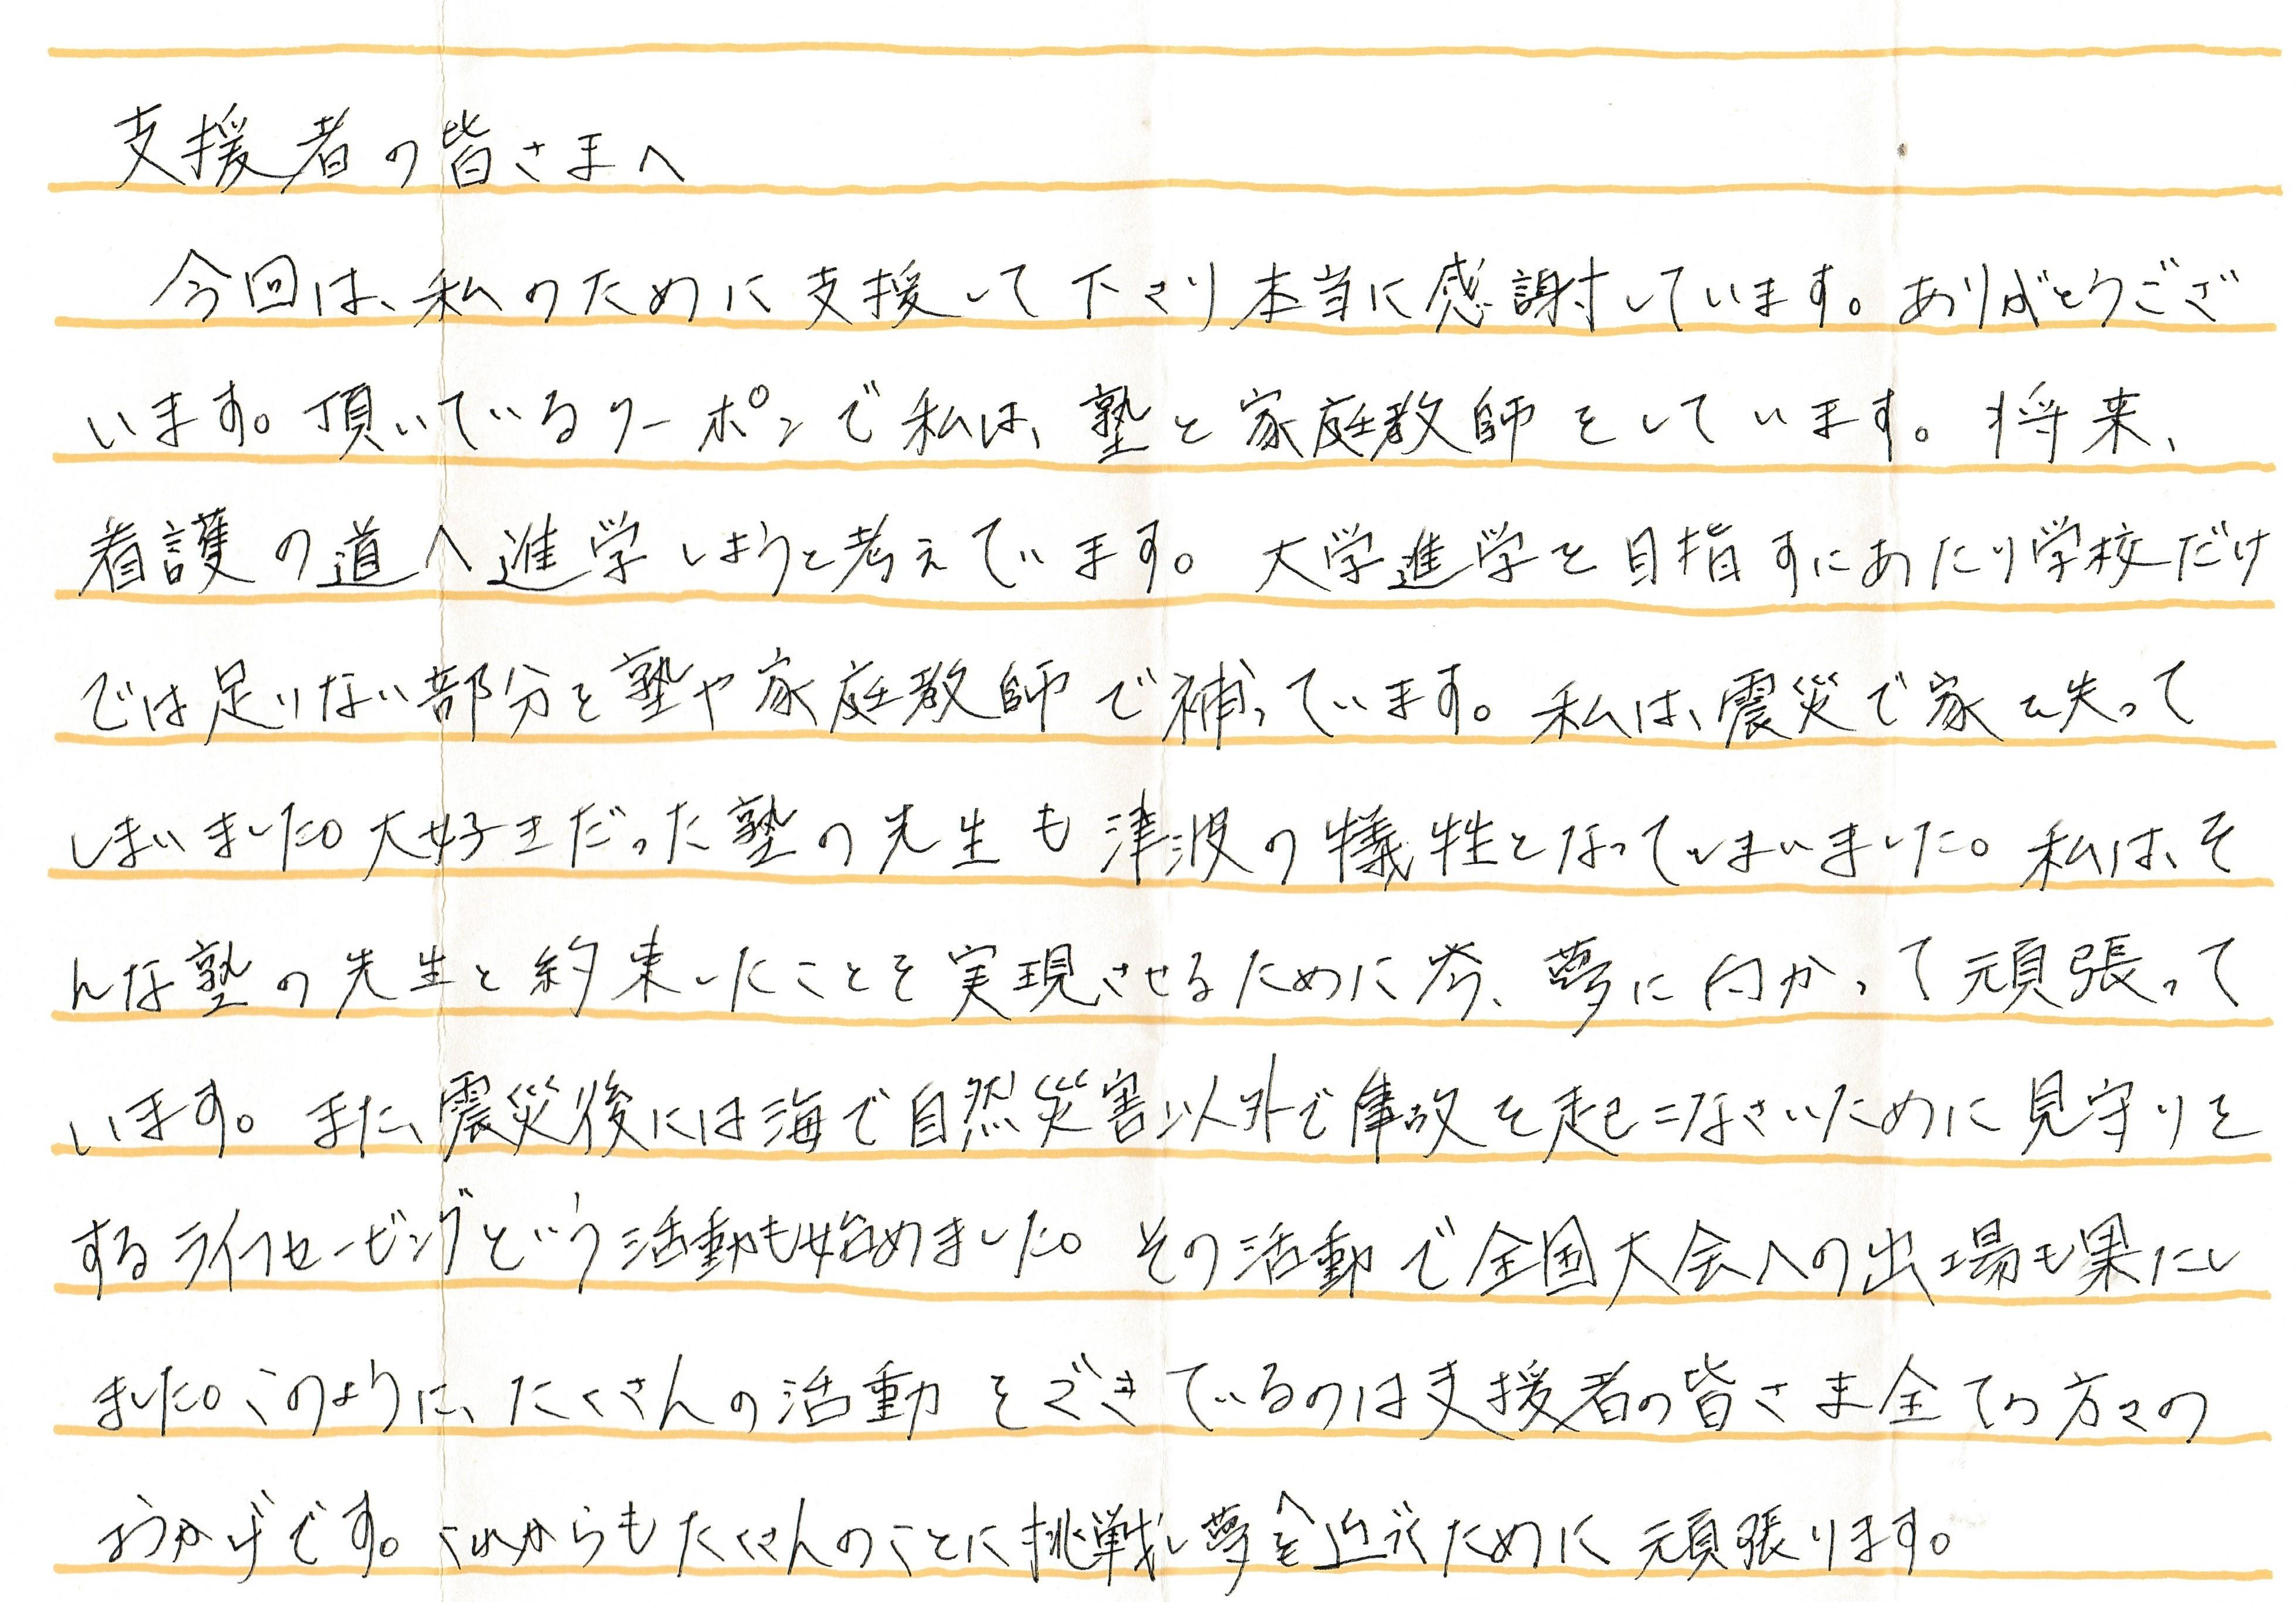 支援者の皆さまへ
今回は、私のために支援して下さり本当に感謝しています。ありがとうござ
います。頂いているクーポンで私は、塾と家庭教師をしています。将来、
看護の道へ進学しようと考えています。大学進学を目指すにあたり学校だけ
では足りない部分を塾や家庭教師で補っています。私は、震災で家を失って
しまいました。大好きだった塾の先生も津波の犠牲となってしまいました。私は、そ
んな塾の先生と約束したことを実現させるために今、夢に向かって頑張って
います。また、震災後には海で自然災害以外で事故を起こなさいために見守りを
するライフセービングという活動も始めました。その活動で全国大会への出場も果たし
ました。このように、たくさんの活動をできているのは支援者の皆さま全ての方々の
おかげです。これからもたくさんのことに挑戦し夢へ近づくために頑張ります。